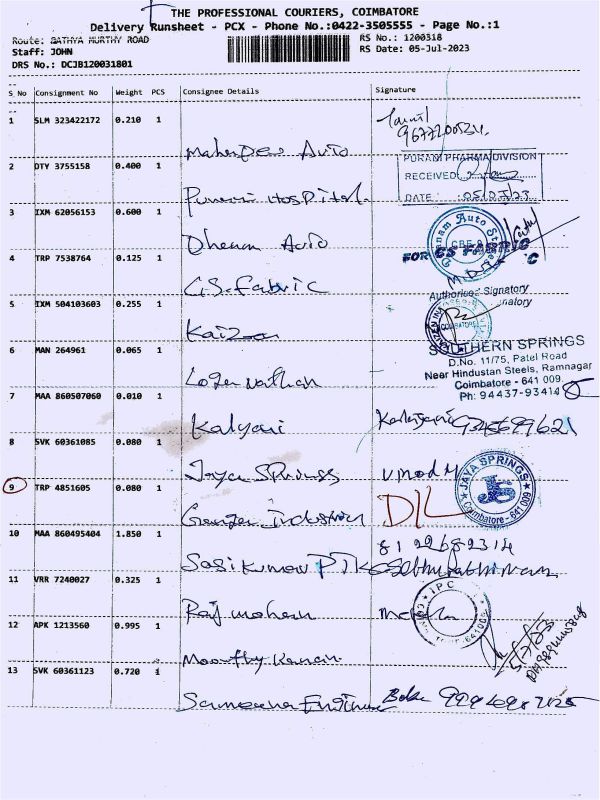 THE PROFESSIONAL COURIERS, COIMBATORE
Delivery Runsheet - PCX - Phone No.:0422-3505555 - Page No.:1
Route: SATHYA MURTHY ROAD
RS No.: 1200318
Staff: JOHN
RS Date: 05-Jul-2023
DRS No.: DCJB120031801
S_No Consignment No Weight PCS Consignee Details Signature
1 SLM 323422172 0.210 1
Mahendev Auto
2 DTY 3755158 0.400 1
PURANI PHARMA DIVISION
RECEIVED
DATE : 05/07/23
Purani Hospital
3 IXM 62056153 0.600 1
Dhanam Auto
4 TRP 7538764 0.125 1
FOR GS FABRIC
G.S. Fabric
Authorised Signatory
5 IXM 504103603 0.255 1
Kaizen
6 MAN 264961 0.065 1
SOUTHERN SPRINGS
D.No. 11/75, Patel Road
Near Hindustan Steels, Ramnagar
Coimbatore - 641 009.
Ph: 94437-93414
Loganathan
7 MAA 860507060 0.010 1
Kalyani
8 SVK 60361085 0.080 1
Jaya Springs
JAYA SPRINGS
Coimbatore - 641 009
9 TRP 4851605 0.080 1
D/L
10 MAA 860495404 1.850 1
Sasikumar
11 VRR 7240027 0.325 1
IPC
Raj mohan
12 APK 1213560 0.995 1
5/7/23
Moorthy Kanan
13 SVK 60361123 0.720 1